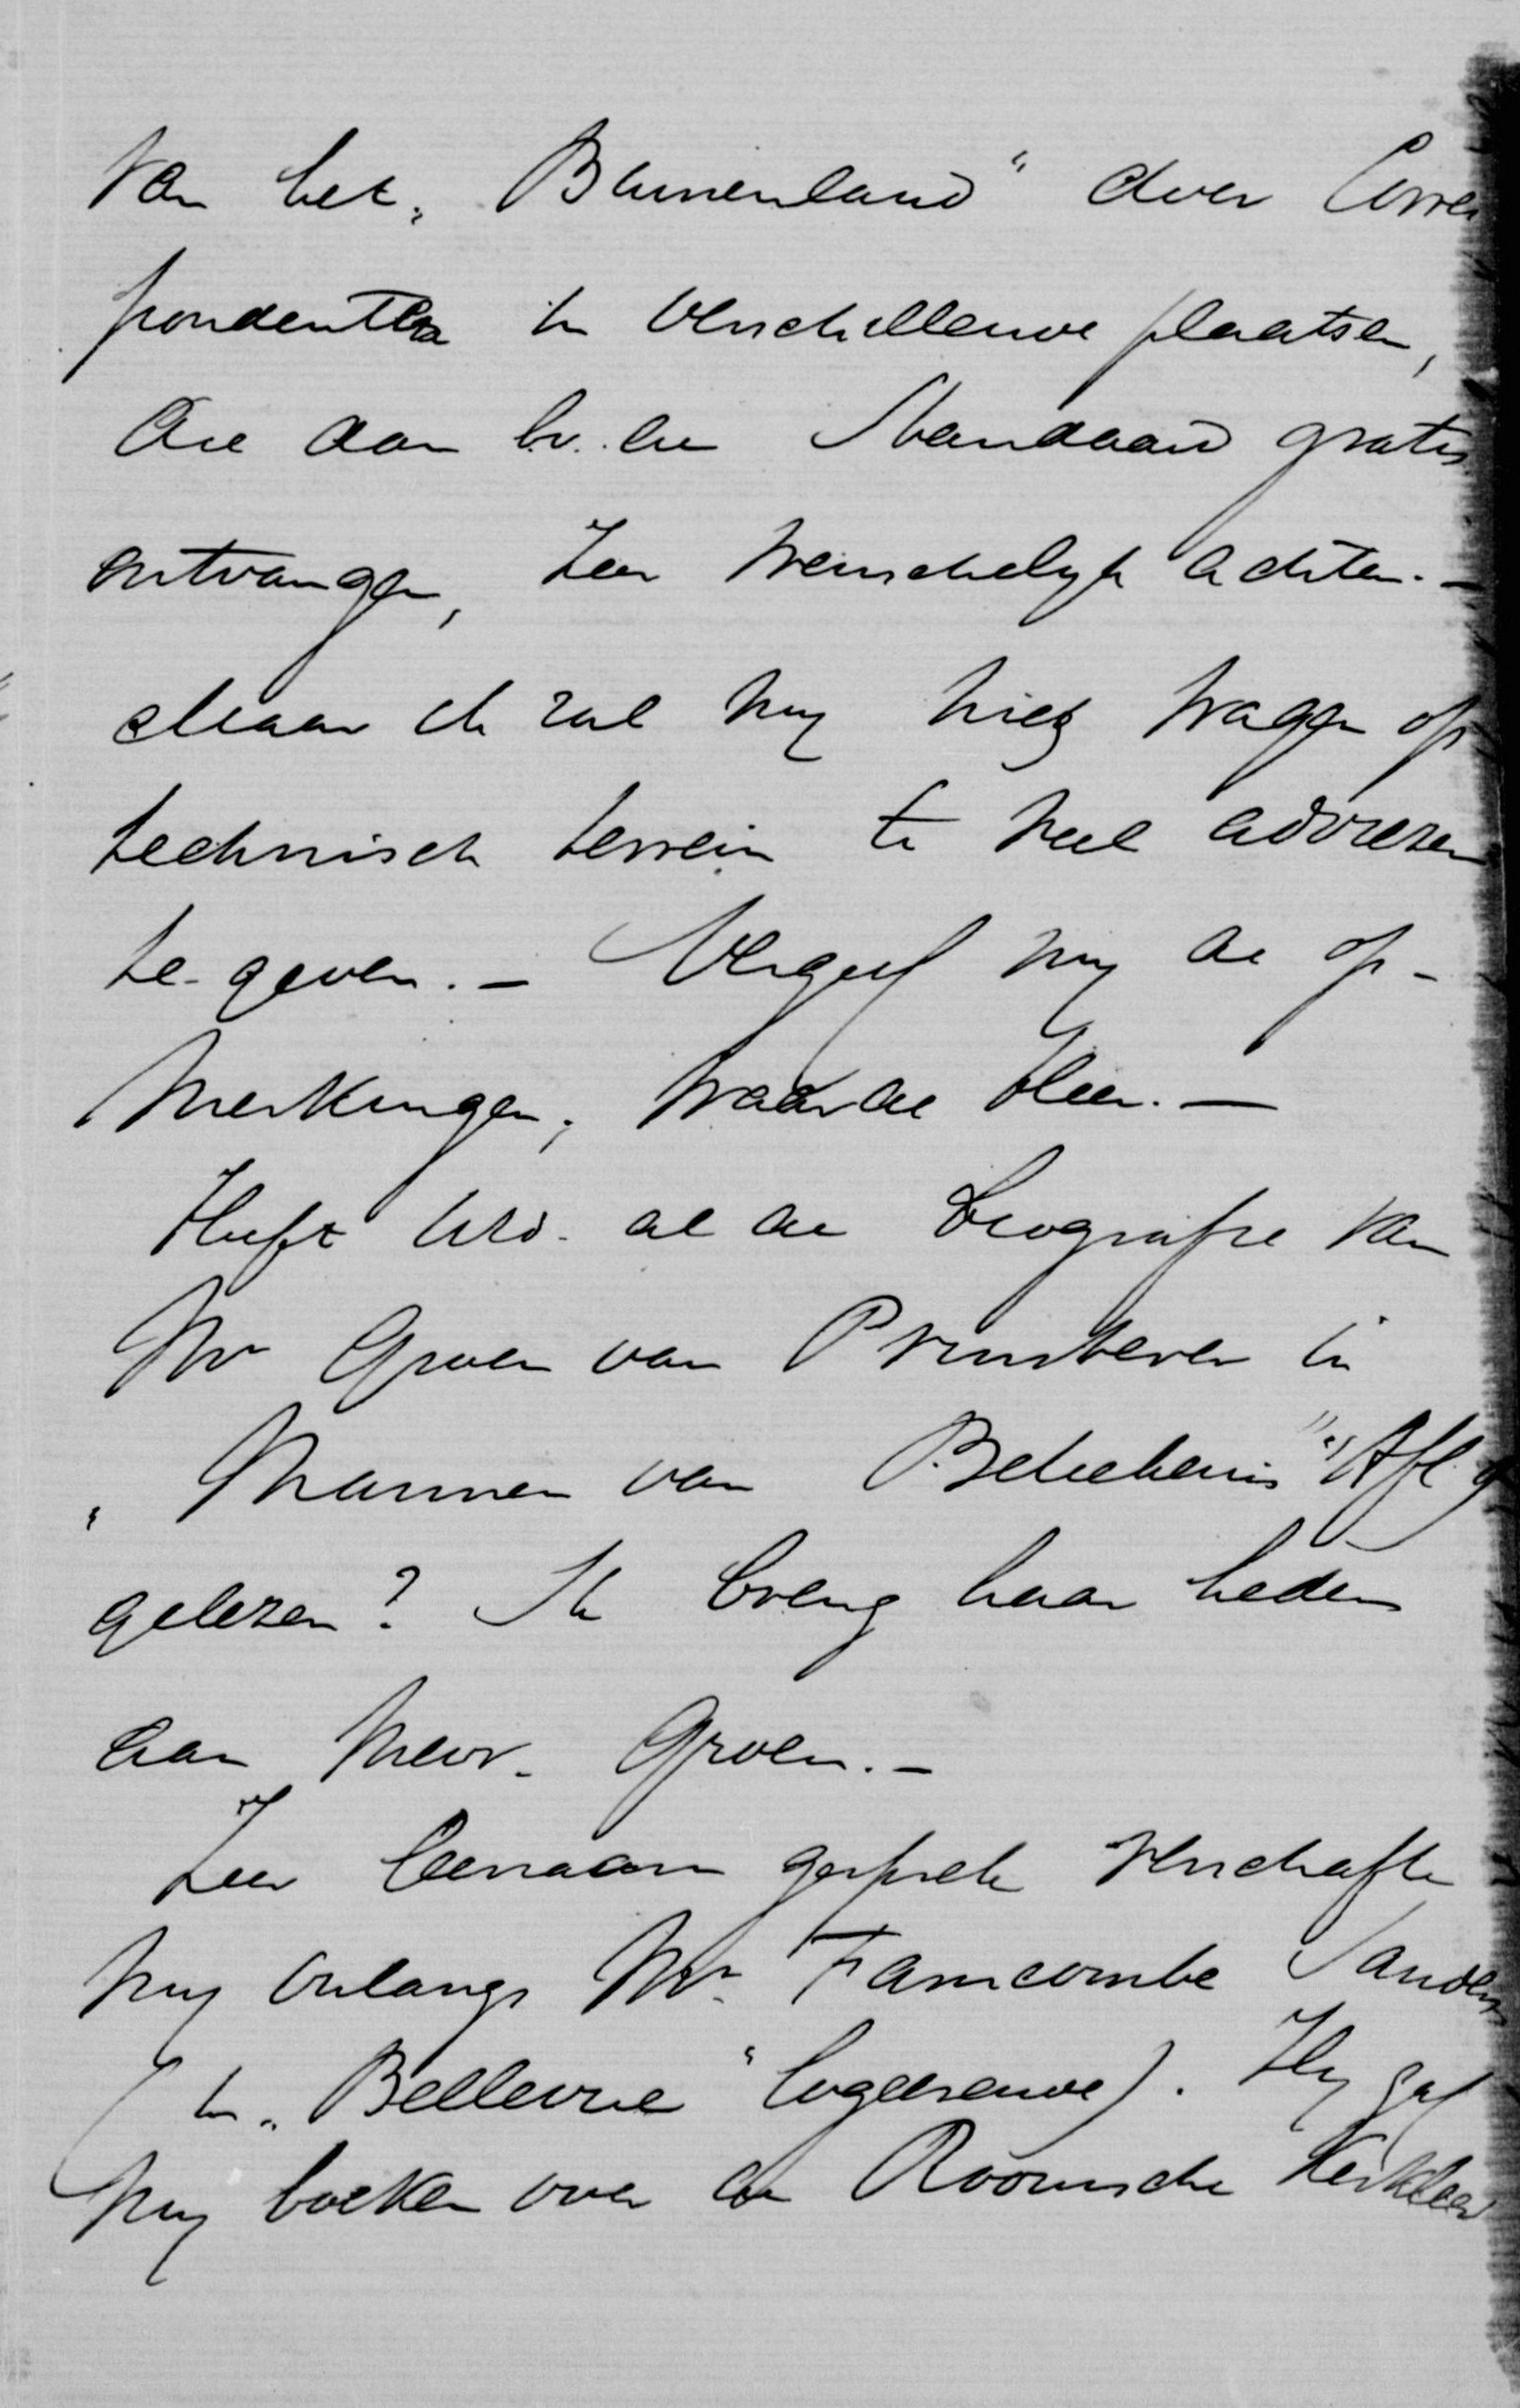 van het „Binnenland" door Corres
pondenten in verschillende plaatsen,
die dan b.v. de Standaard gratis
ontvangen, zeer wenschelijk achten. —
Maar ik zal mij niet wagen op
technisch terrein te veel adviezen
te geven. — Vergeef mij de op-
merkingen, waarde Heer. —
Heeft UEd. al de biografie van
Mr Groen van Prinsterer in
„Mannen van Beteekenis" Afl. 9
gelezen? Ik breng haar heden
aan Mevr. Groen. —
Zeer leerzaam gesprek verschafte
mij onlangs Mr. Famcombe Sanders
(in „Bellevue" logeerende). Hij gaf
mij boeken over de Roomsche Kerkleer